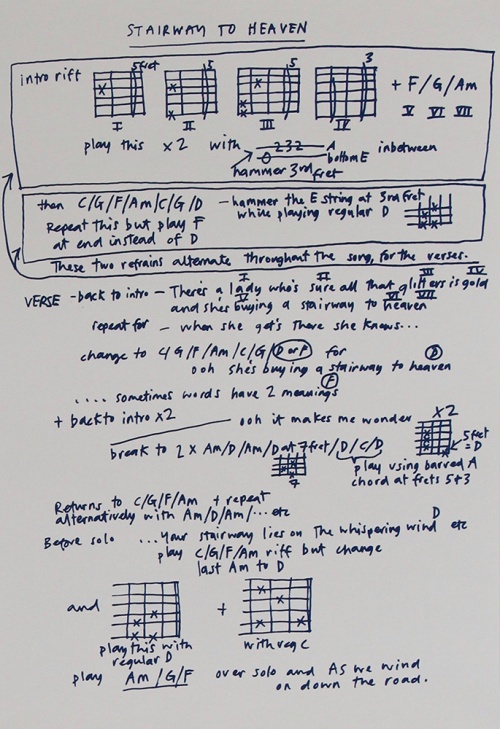 STAIRWAY TO HEAVEN
intro riff 5fret 5 5 3 + F/G/Am
I II III IV V VI VII
play this x2 with 232 A inbetween
0 bottom E
hammer 3rd fret
then C/G/F/Am/C/G/D - hammer the E string at 3rd fret
while playing regular D
Repeat this but play F
at end instead of D
These two refrains alternate throughout the song, for the verses.
I II III IV
VERSE - back to intro - There's a lady who's sure all that glitters is gold
V VI VII
and she's buying a stairway to heaven
repeat for - when she get's there she knows...
change to 4 G/F/Am/C/G/D or F for D
ooh she's buying a stairway to heaven
F
.... sometimes words have 2 meanings
+ back to intro x2 ooh it makes me wonder x2
5fret = D
break to 2 x Am/D/Am/D at 7fret/D/C/D
7
play using barred A
chord at frets 5+3
Returns to C/G/F/Am + repeat
alternatively with Am/D/Am/... etc
D
Before solo ...Your stairway lies on The whispering wind etc
play C/G/F/Am riff but change
last Am to D
and +
play this with
regular D
with reg C
play Am/G/F over solo and As we wind
on down the road.